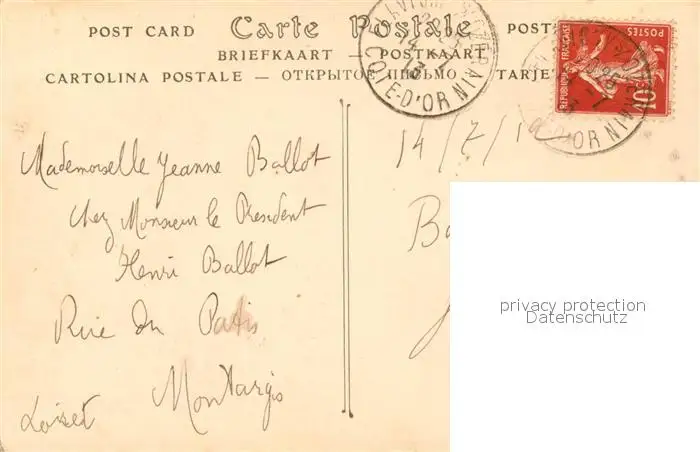 POST CARD Carte Postale POST
BRIEFKAART — POSTKAART
CARTOLINA POSTALE — ОТКРЫТОЕ ПИСЬМО — TARJE
CÔTE-D'OR
14
13
REPUBLIQUE FRANÇAISE
POSTES
10c
D'OR
14/7/1
Mademoiselle Jeanne Ballot
Chez Monsieur le President
Henri Ballot
Rue du Patis
Montargis
Loiret
Ba
privacy protection
Datenschutz